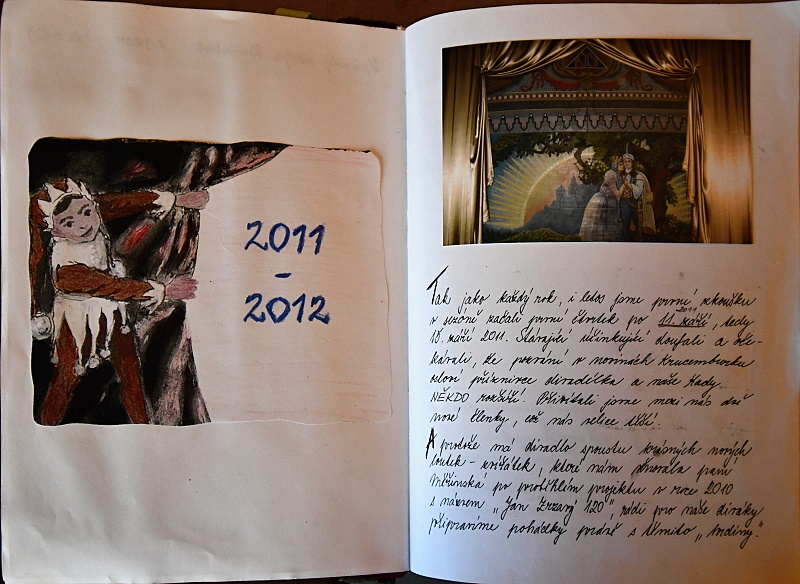 2011
-
2012
Tak jako každý rok, i letos jsme první zkoušku
v sezóně začali první čtvrtek po 11. září, tedy
2011
15. září 2011. Stávající účinkující doufali a oče-
kávali, že pozvání v novinách Krucemburku
osloví příznivce divadélka a naše řady
NĚKDO rozšíří. Přivítali jsme mezi nás dvě
nové členky, což nás velice těší.
A protože má divadlo spoustu krásných nových
loutek - zvířátek, které nám darovala paní
po proběhlém projektu v roce 2010
s názvem "Jan Zrzavý 120" rádi pro naše diváky
připravíme pohádky právě s těmito "hrdiny".